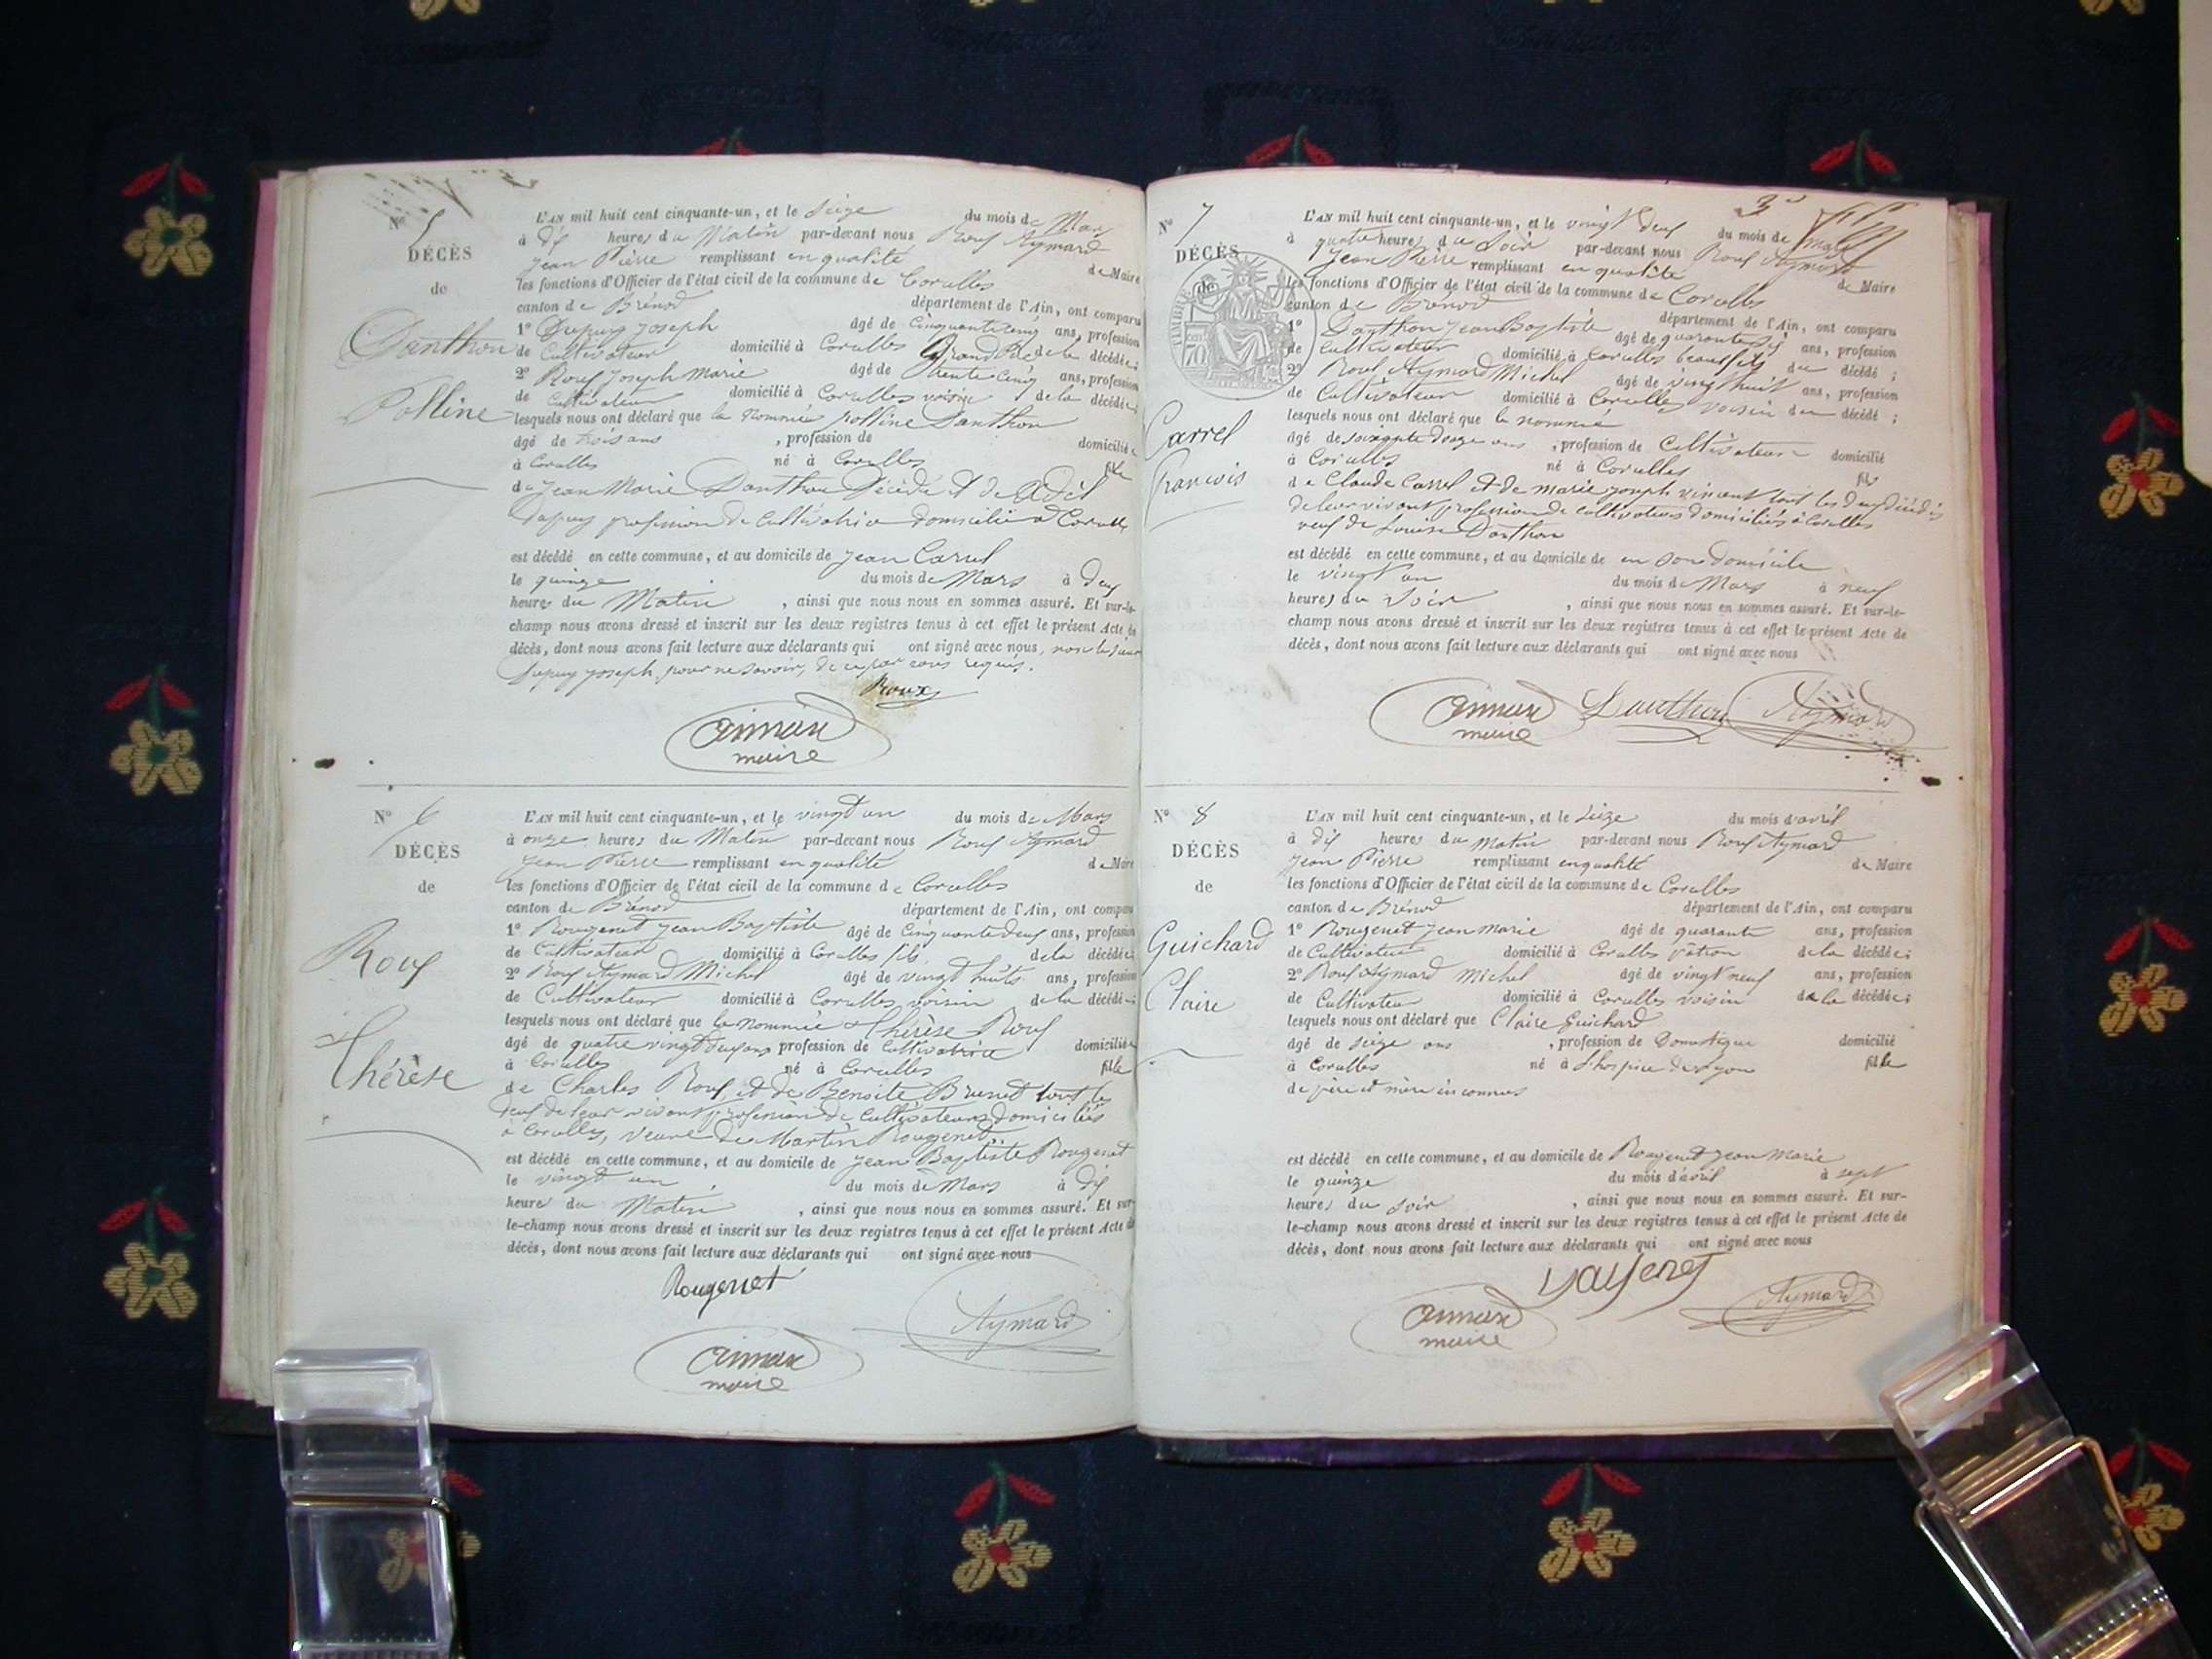 N° 5
DÉCÈS
de
Danthon
Polline
L'AN mil huit cent cinquante-un, et le seize du mois de Mars
à dix heures du Matin par-devant nous Roux Aymard
Jean Pierre remplissant en qualité de Maire
les fonctions d'Officier de l'état civil de la commune de Corcelles
canton de Brénod département de l'Ain, ont comparu
1° Dupuy Joseph âgé de Cinquante cinq ans, profession
de Cultivateur domicilié à Corcelles Grand Père de la décédée;
2° Roux Joseph Marie âgé de trente cinq ans, profession
de Cultivateur domicilié à Corcelles voisin de la décédée;
lesquels nous ont déclaré que la nommée polline Danthon
âgé de trois ans , profession de domiciliée
à Corcelles né à Corcelles fille
de Jean Marie Danthon Décédé et de Adèl
Dupuy profession de Cultivatrice domiciliée à Corcelles
est décédé en cette commune, et au domicile de Jean Carrel
le quinze du mois de Mars à deux
heures du Matin , ainsi que nous nous en sommes assuré. Et sur-le-
champ nous avons dressé et inscrit sur les deux registres tenus à cet effet le présent Acte de
décès, dont nous avons fait lecture aux déclarants qui ont signé avec nous, non le sieur
Dupuy Joseph pour ne savoir, de ce par nous requis.
Roux
Aimard
maire
N° 6
DÉCÈS
de
Roux
Thérèse
L'AN mil huit cent cinquante-un, et le vingt un du mois de Mars
à onze heures du Matin par-devant nous Roux Aymard
Jean Pierre remplissant en qualité de Maire
les fonctions d'Officier de l'état civil de la commune de Corcelles
canton de Brénod département de l'Ain, ont comparu
1° Rougenet Jean Baptiste âgé de Cinquante deux ans, profession
de Cultivateur domicilié à Corcelles fils de la décédée;
2° Roux Aymard Michel âgé de vingt huits ans, profession
de Cultivateur domicilié à Corcelles voisin de la décédée;
lesquels nous ont déclaré que la nommée Thérèse Roux
âgé de quatre vingt deux ans profession de Cultivatrice domiciliée
à Corcelles né à Corcelles fille
de Charles Roux, et de Benoite Brunet tout les
deux de leur vivant profession de Cultivateurs domiciliés
à Corcelles, veuve de Martin Rougenet
est décédé en cette commune, et au domicile de Jean Baptiste Rougenet
le vingt un du mois de Mars à dix
heure du Matin , ainsi que nous nous en sommes assuré. Et sur-
le-champ nous avons dressé et inscrit sur les deux registres tenus à cet effet le présent Acte de
décès, dont nous avons fait lecture aux déclarants qui ont signé avec nous
Rougenet
Aymard
Aimard
maire
3e
N° 7
DÉCÈS
de
TIMBRE
70
Carrel
Francois
L'AN mil huit cent cinquante-un, et le vingt deux du mois de mars
à quatre heures du Soir par-devant nous Roux Aymard
Jean Pierre remplissant en qualité de Maire
les fonctions d'Officier de l'état civil de la commune de Corcelles
canton de Brénod département de l'Ain, ont comparu
1° Danthon Jean Baptiste âgé de quarante six ans, profession
de Cultivateur domicilié à Corcelles beaufils du décédé;
2° Roux Aymard Michel âgé de vingt huit ans, profession
de Cultivateur domicilié à Corcelles voisin du décédé;
lesquels nous ont déclaré que le nommé
âgé de soixante douze ans , profession de Cultivateur domicilié
à Corcelles né à Corcelles fils
de Claude Carrel et de marie Joseph vincent tout les deux décédés
de leur vivant profession de cultivateurs domiciliés à Corcelles
veuf de Louise Danthon
est décédé en cette commune, et au domicile de en son domicile
le vingt un du mois de Mars à neuf
heures du Soir , ainsi que nous nous en sommes assuré. Et sur-le-
champ nous avons dressé et inscrit sur les deux registres tenus à cet effet le présent Acte de
décès, dont nous avons fait lecture aux déclarants qui ont signé avec nous
Aimard Danthon Aymard
maire
N° 8
DÉCÈS
de
Guichard
Claire
L'AN mil huit cent cinquante-un, et le Seize du mois d'avril
à dix heures du Matin par-devant nous Roux Aymard
Jean Pierre remplissant en qualité de Maire
les fonctions d'Officier de l'état civil de la commune de Corcelles
canton de Brénod département de l'Ain, ont comparu
1° Rougenet Jean marie âgé de quarante ans, profession
de Cultivateur domicilié à Corcelles pâtron de la décédée;
2° Roux Aymard Michel âgé de vingt neuf ans, profession
de Cultivateur domicilié à Corcelles voisin de la décédée;
lesquels nous ont déclaré que Claire Guichard
âgé de seize ans , profession de Domestique domicilié
à Corcelles né à L'hospice de Lyon fille
de père et mère inconnus
est décédé en cette commune, et au domicile de Rougenet Jean Marie
le quinze du mois d'avril à sept
heures du soir , ainsi que nous nous en sommes assuré. Et sur-
le-champ nous avons dressé et inscrit sur les deux registres tenus à cet effet le présent Acte de
décès, dont nous avons fait lecture aux déclarants qui ont signé avec nous
Aymard
Aimard
maire